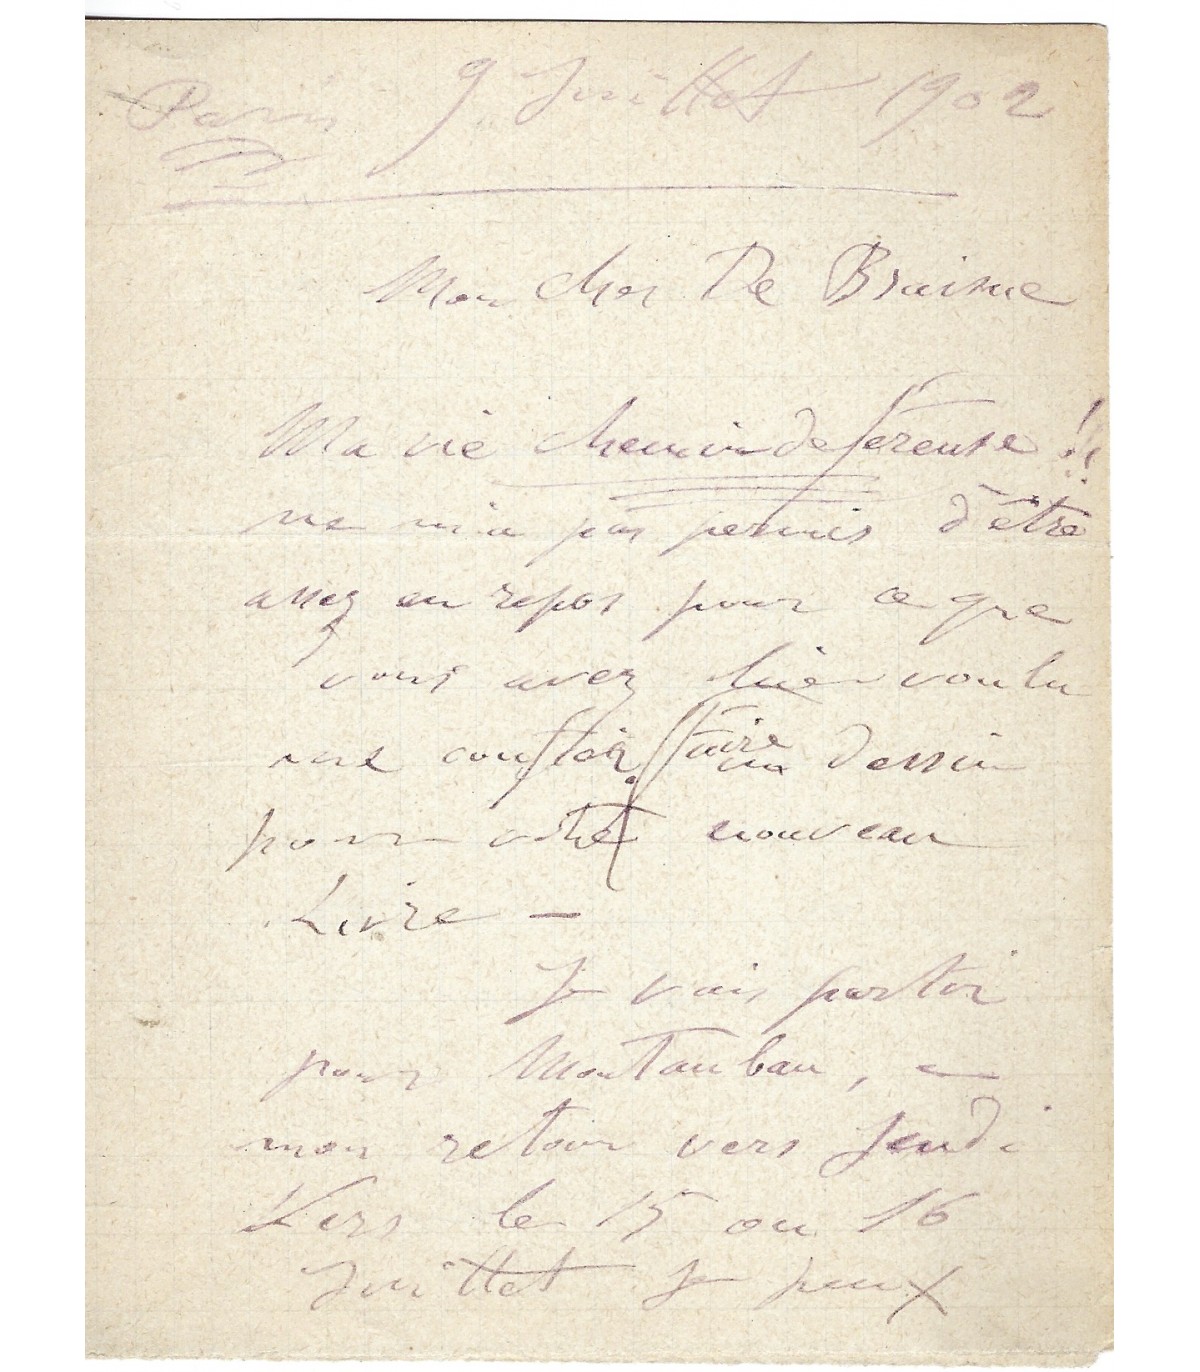 Paris 9 Juillet 1902
Mon cher De Braisne
Ma vie chemindeféreuse !!
ne m'a pas permis d'être
assez en repos pour ce que
vous avez bien voulu
me confier, faire un dessin
pour votre nouveau
Livre —
Je vais partir
pour Montauban, a
mon retour vers Jeudi
Vers le 15 ou 16
Juillet je peux